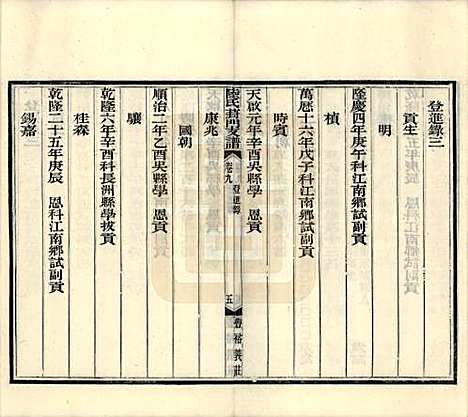 登進錄三
貢生
明
隆慶四年庚午科江南鄉試副貢
楨
萬曆十六年戊子科江南鄉試副貢
時賓
天啟元年辛酉吳縣學　恩貢
陸氏葑門支譜　卷九　登進錄　五　豊裕義莊
康兆
國朝
順治二年乙酉吳縣學　恩貢
驤
乾隆六年辛酉科長洲縣學拔貢
桂森
乾隆二十五年庚辰　恩科江南鄉試副貢
錫嘉